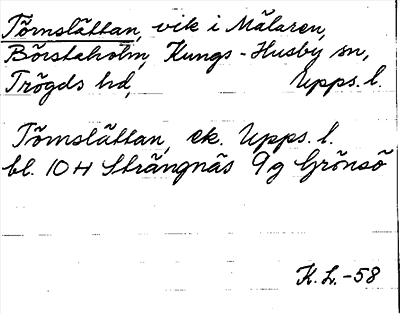 Törnslättan, vik i Mälaren,
Börstaholm, Kungs-Husby sn,
Trögds hd, Upps. l.
Törnslättan, ek. Upps. l.
bl. 10 H Strängnäs 9g Grönsö
K. L. -58